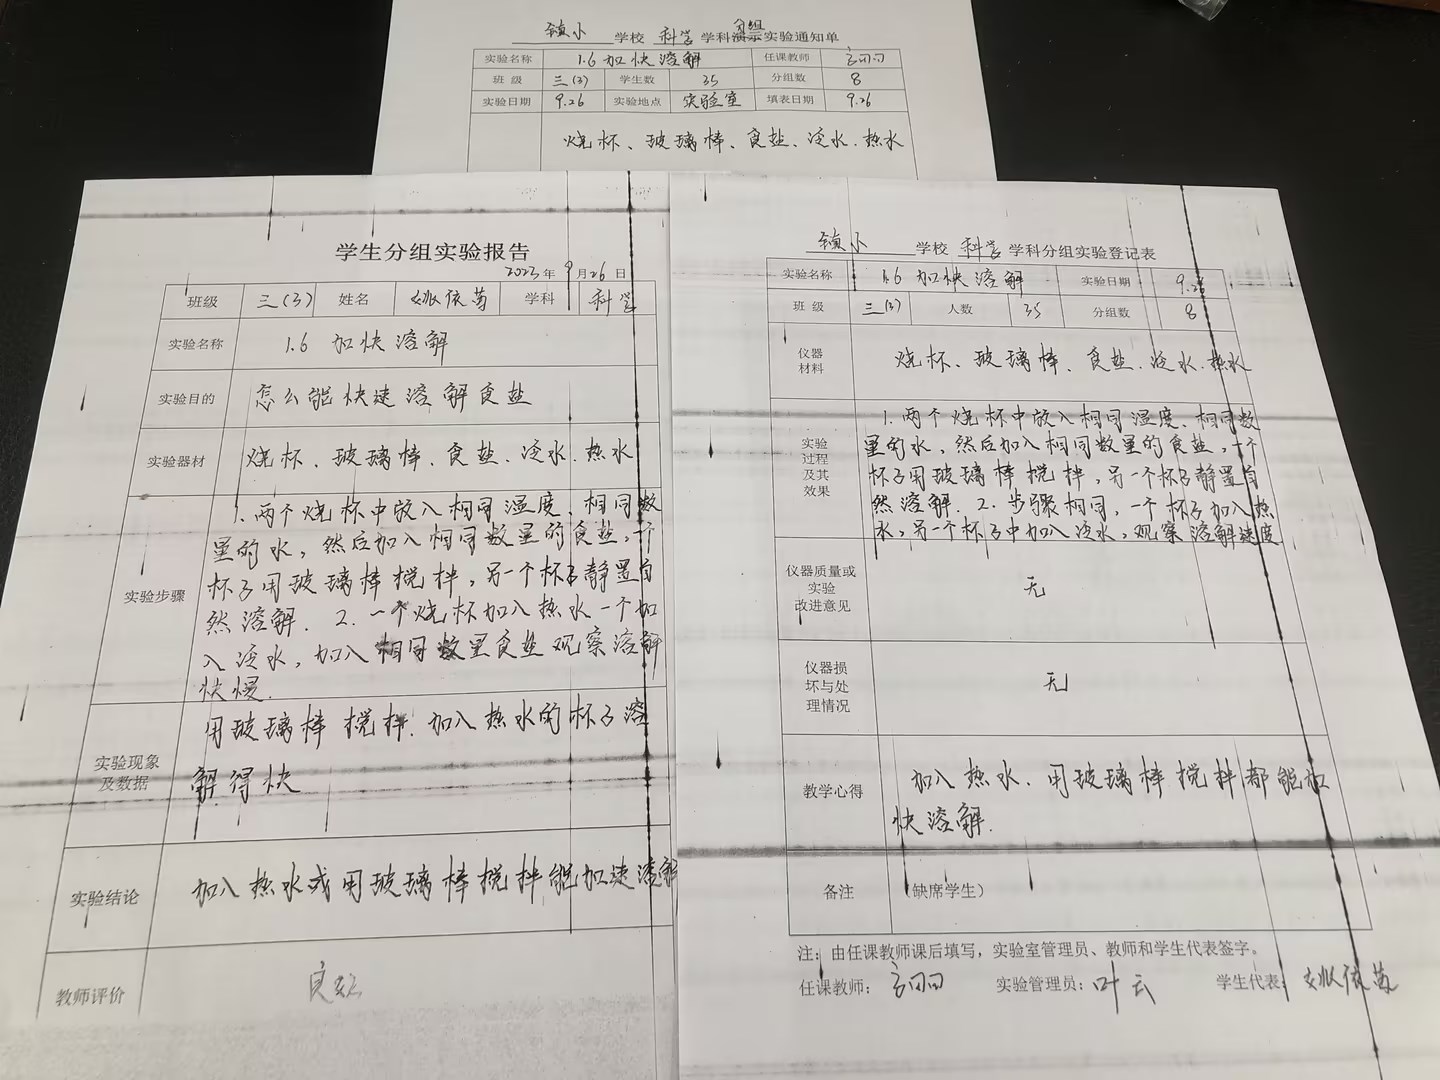 镇小 学校 科学 学科演示实验通知单
分组
实验名称 1.6 加快溶解 任课教师
班 级 三(3) 学生数 35 分组数 8
实验日期 9.26 实验地点 实验室 填表日期 9.26
烧杯、玻璃棒、食盐、冷水、热水
学生分组实验报告
2023年 9月26日
班级 三(3) 姓名 姚依菊 学科 科学
实验名称 1.6 加快溶解
实验目的 怎么能快速溶解食盐
实验器材 烧杯、玻璃棒、食盐、冷水、热水
实验步骤
1.两个烧杯中放入相同温度、相同数
量的水,然后加入相同数量的食盐,一个
杯子用玻璃棒搅拌,另一个杯子静置自
然溶解. 2.一个烧杯加入热水一个加
入冷水,加入相同数量食盐观察溶解
快慢.
实验现象
及数据
用玻璃棒搅拌.加入热水的杯子溶
解得快
实验结论 加入热水或用玻璃棒搅拌能加速溶解
教师评价
镇小 学校 科学 学科分组实验登记表
实验名称 1.6 加快溶解 实验日期 9.26
班 级 三(3) 人数 35 分组数 8
仪器
材料
烧杯、玻璃棒、食盐、冷水.热水
实验
过程
及其
效果
1.两个烧杯中放入相同温度、相同数
量的水,然后加入相同数量的食盐,一个
杯子用玻璃棒搅拌,另一个杯子静置自
然溶解. 2.步骤相同,一个杯子加入热
水,另一个杯子中加入冷水,观察溶解速度
仪器质量或
实验
改进意见
无
仪器损
坏与处
理情况
无
教学心得
加入热水.用玻璃棒搅拌都能加
快溶解.
备注 (缺席学生)
注:由任课教师课后填写,实验室管理员、教师和学生代表签字。
任课教师: 实验管理员:叶云 学生代表:姚依菊